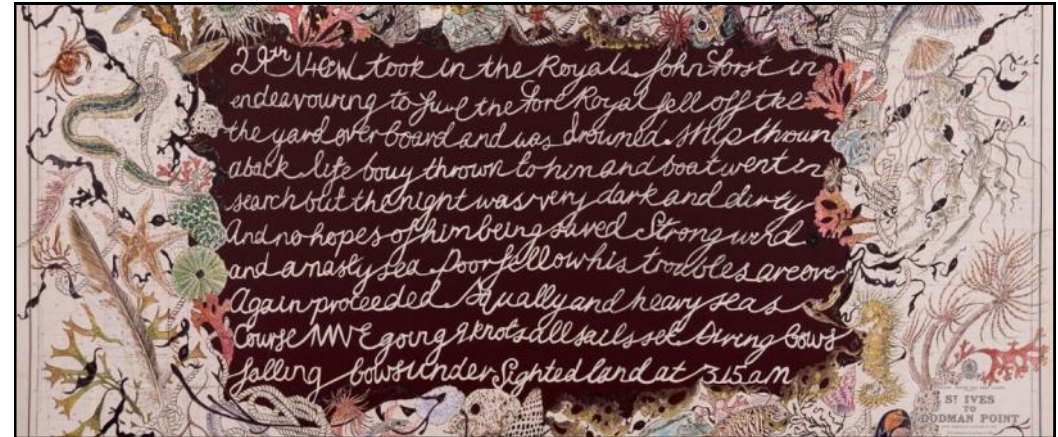 29th N46W took in the Royals John Forst in
endeavouring to furl the Fore Royal fell off the
the yard over board and was drowned. Ship thrown
aback life bouy thrown to him and boat went in
search but the night was very dark and dirty
And no hopes of him being saved Strong wind
and a nasty sea Poor fellow his troubles are over
Again proceeded Squally and heavy seas
Course NNE going 9 knots all sails set Diving bows
falling bows under Sighted land at 3.15 am
ST IVES
TO
DODMAN POINT